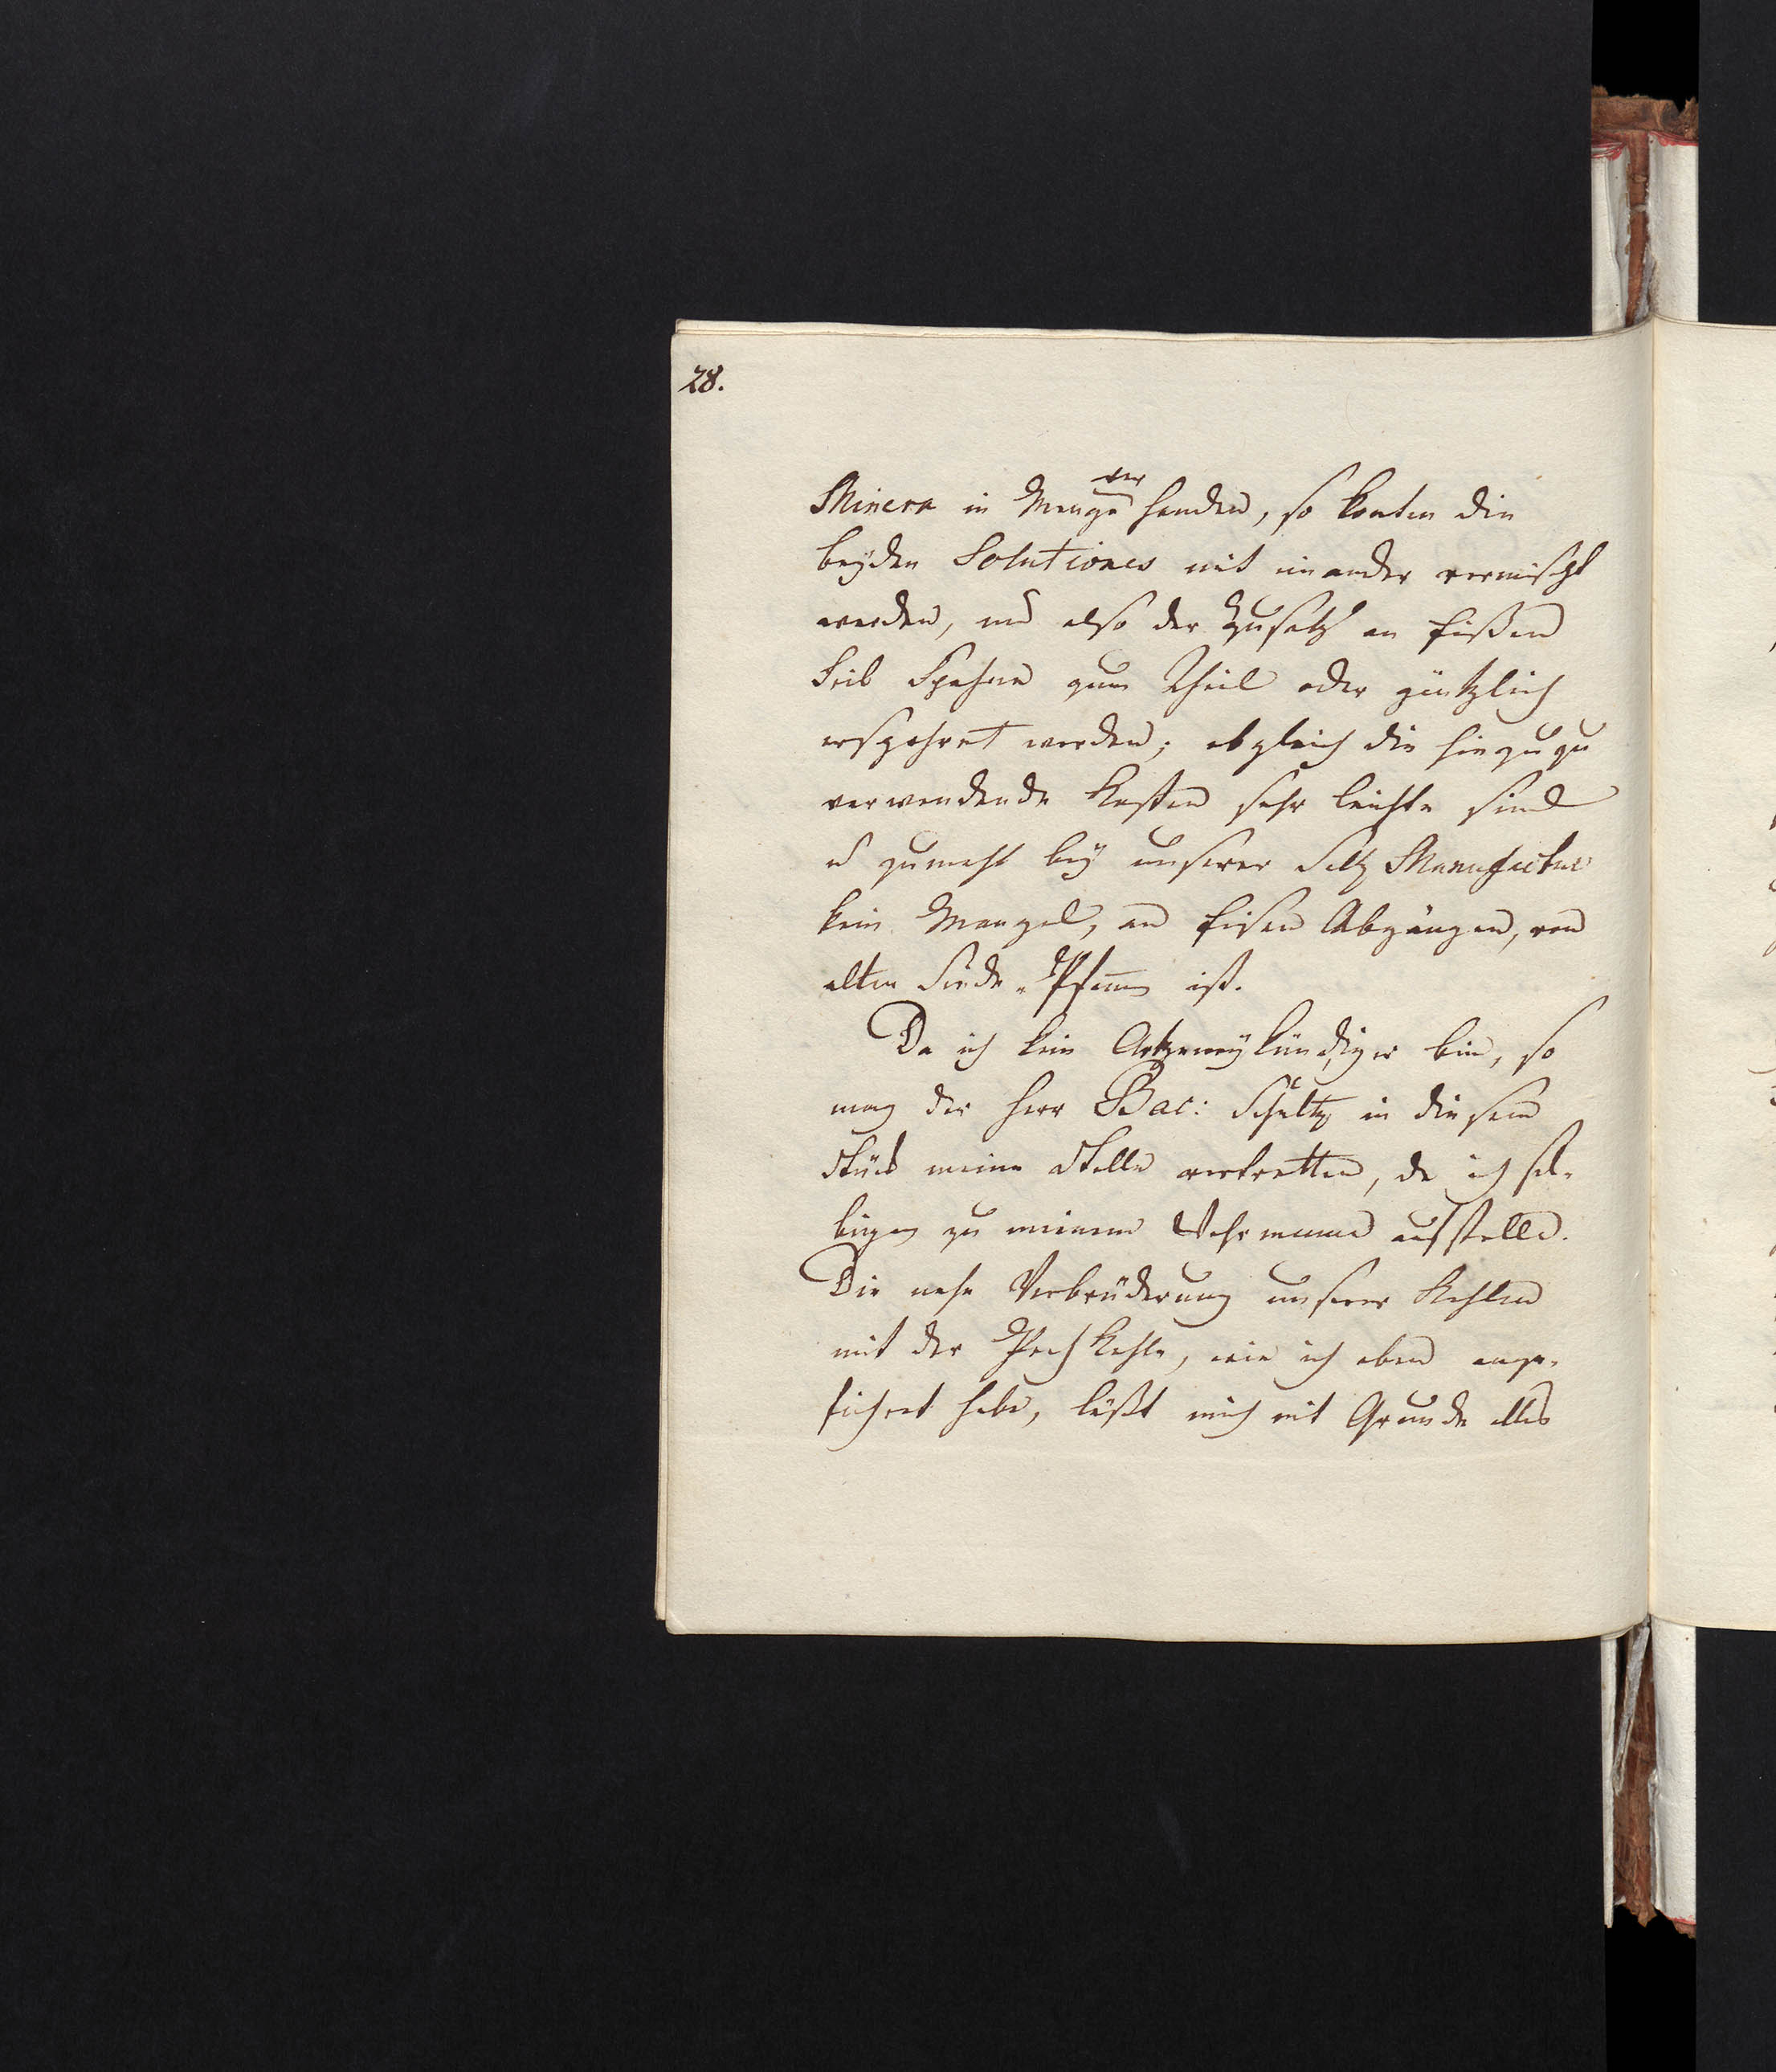 28.
Minera in Menge vor handen, so konten die
beyden Solutiones mit einander vermischt
werden, und also der Zusatz an Eißen
Feil Spahne zum Theil oder gäntzlich
erspahret werden; obgleich die hinzu zu
verwendende Kosten sehr leichte sind
u zumahl bey unserer Saltz Manufactur
kein Mangel, an Eisen Abgängen, von
alten Siede-Pfannen ist.
Da ich kein Artzeneykündiger bin, so
mag der Herr Bac: Schultz in diesem
Stück meine Stelle vertretten, da ich sel-
bigen zu meinem Wehrmann aufstelle.
Die nahe Verbrüderung unserer Kohlen
mit der Pechkohle, wie ich oben ange-
führet habe, läßt mich mit Grunde alles